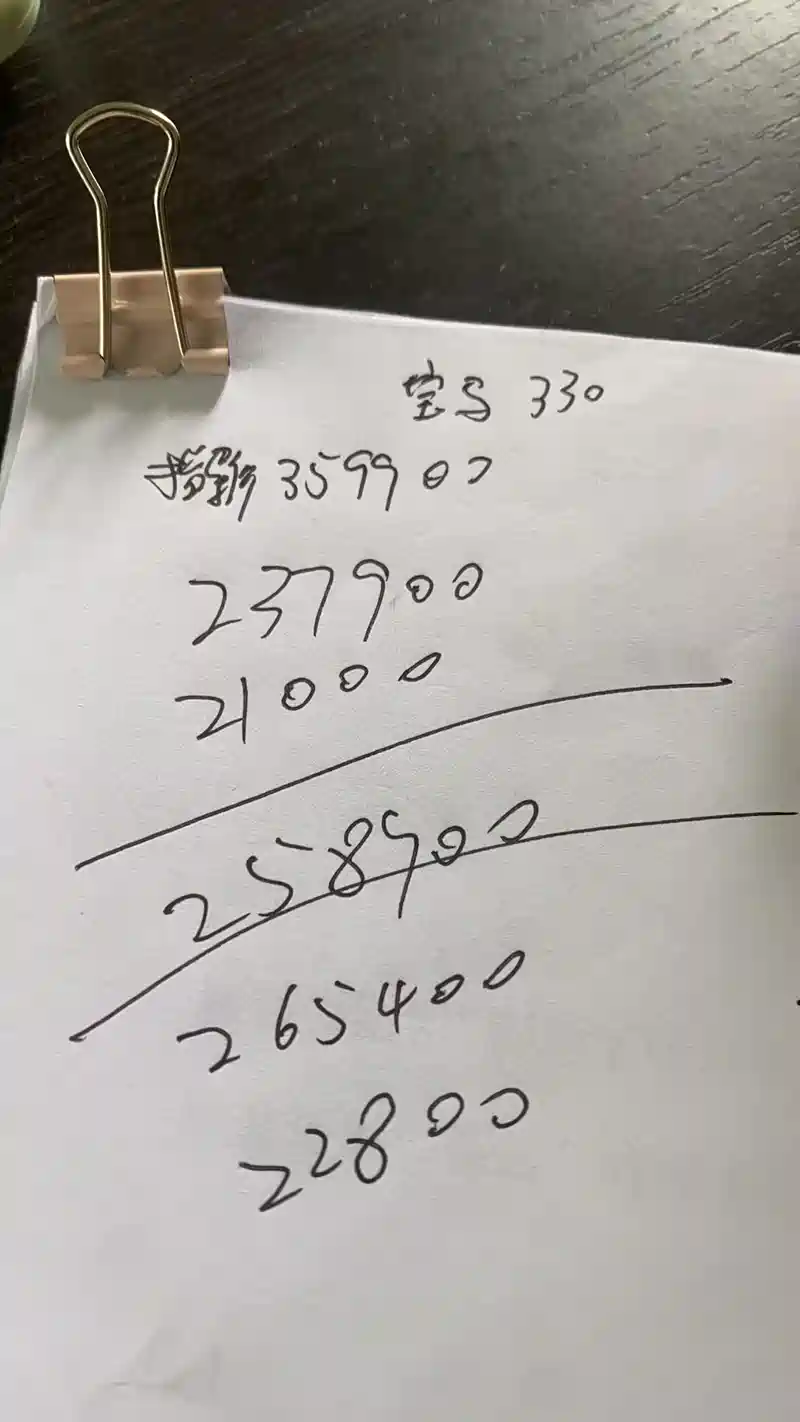 宝马 330
指导价 359900
237900
21000
258900
265400
22800